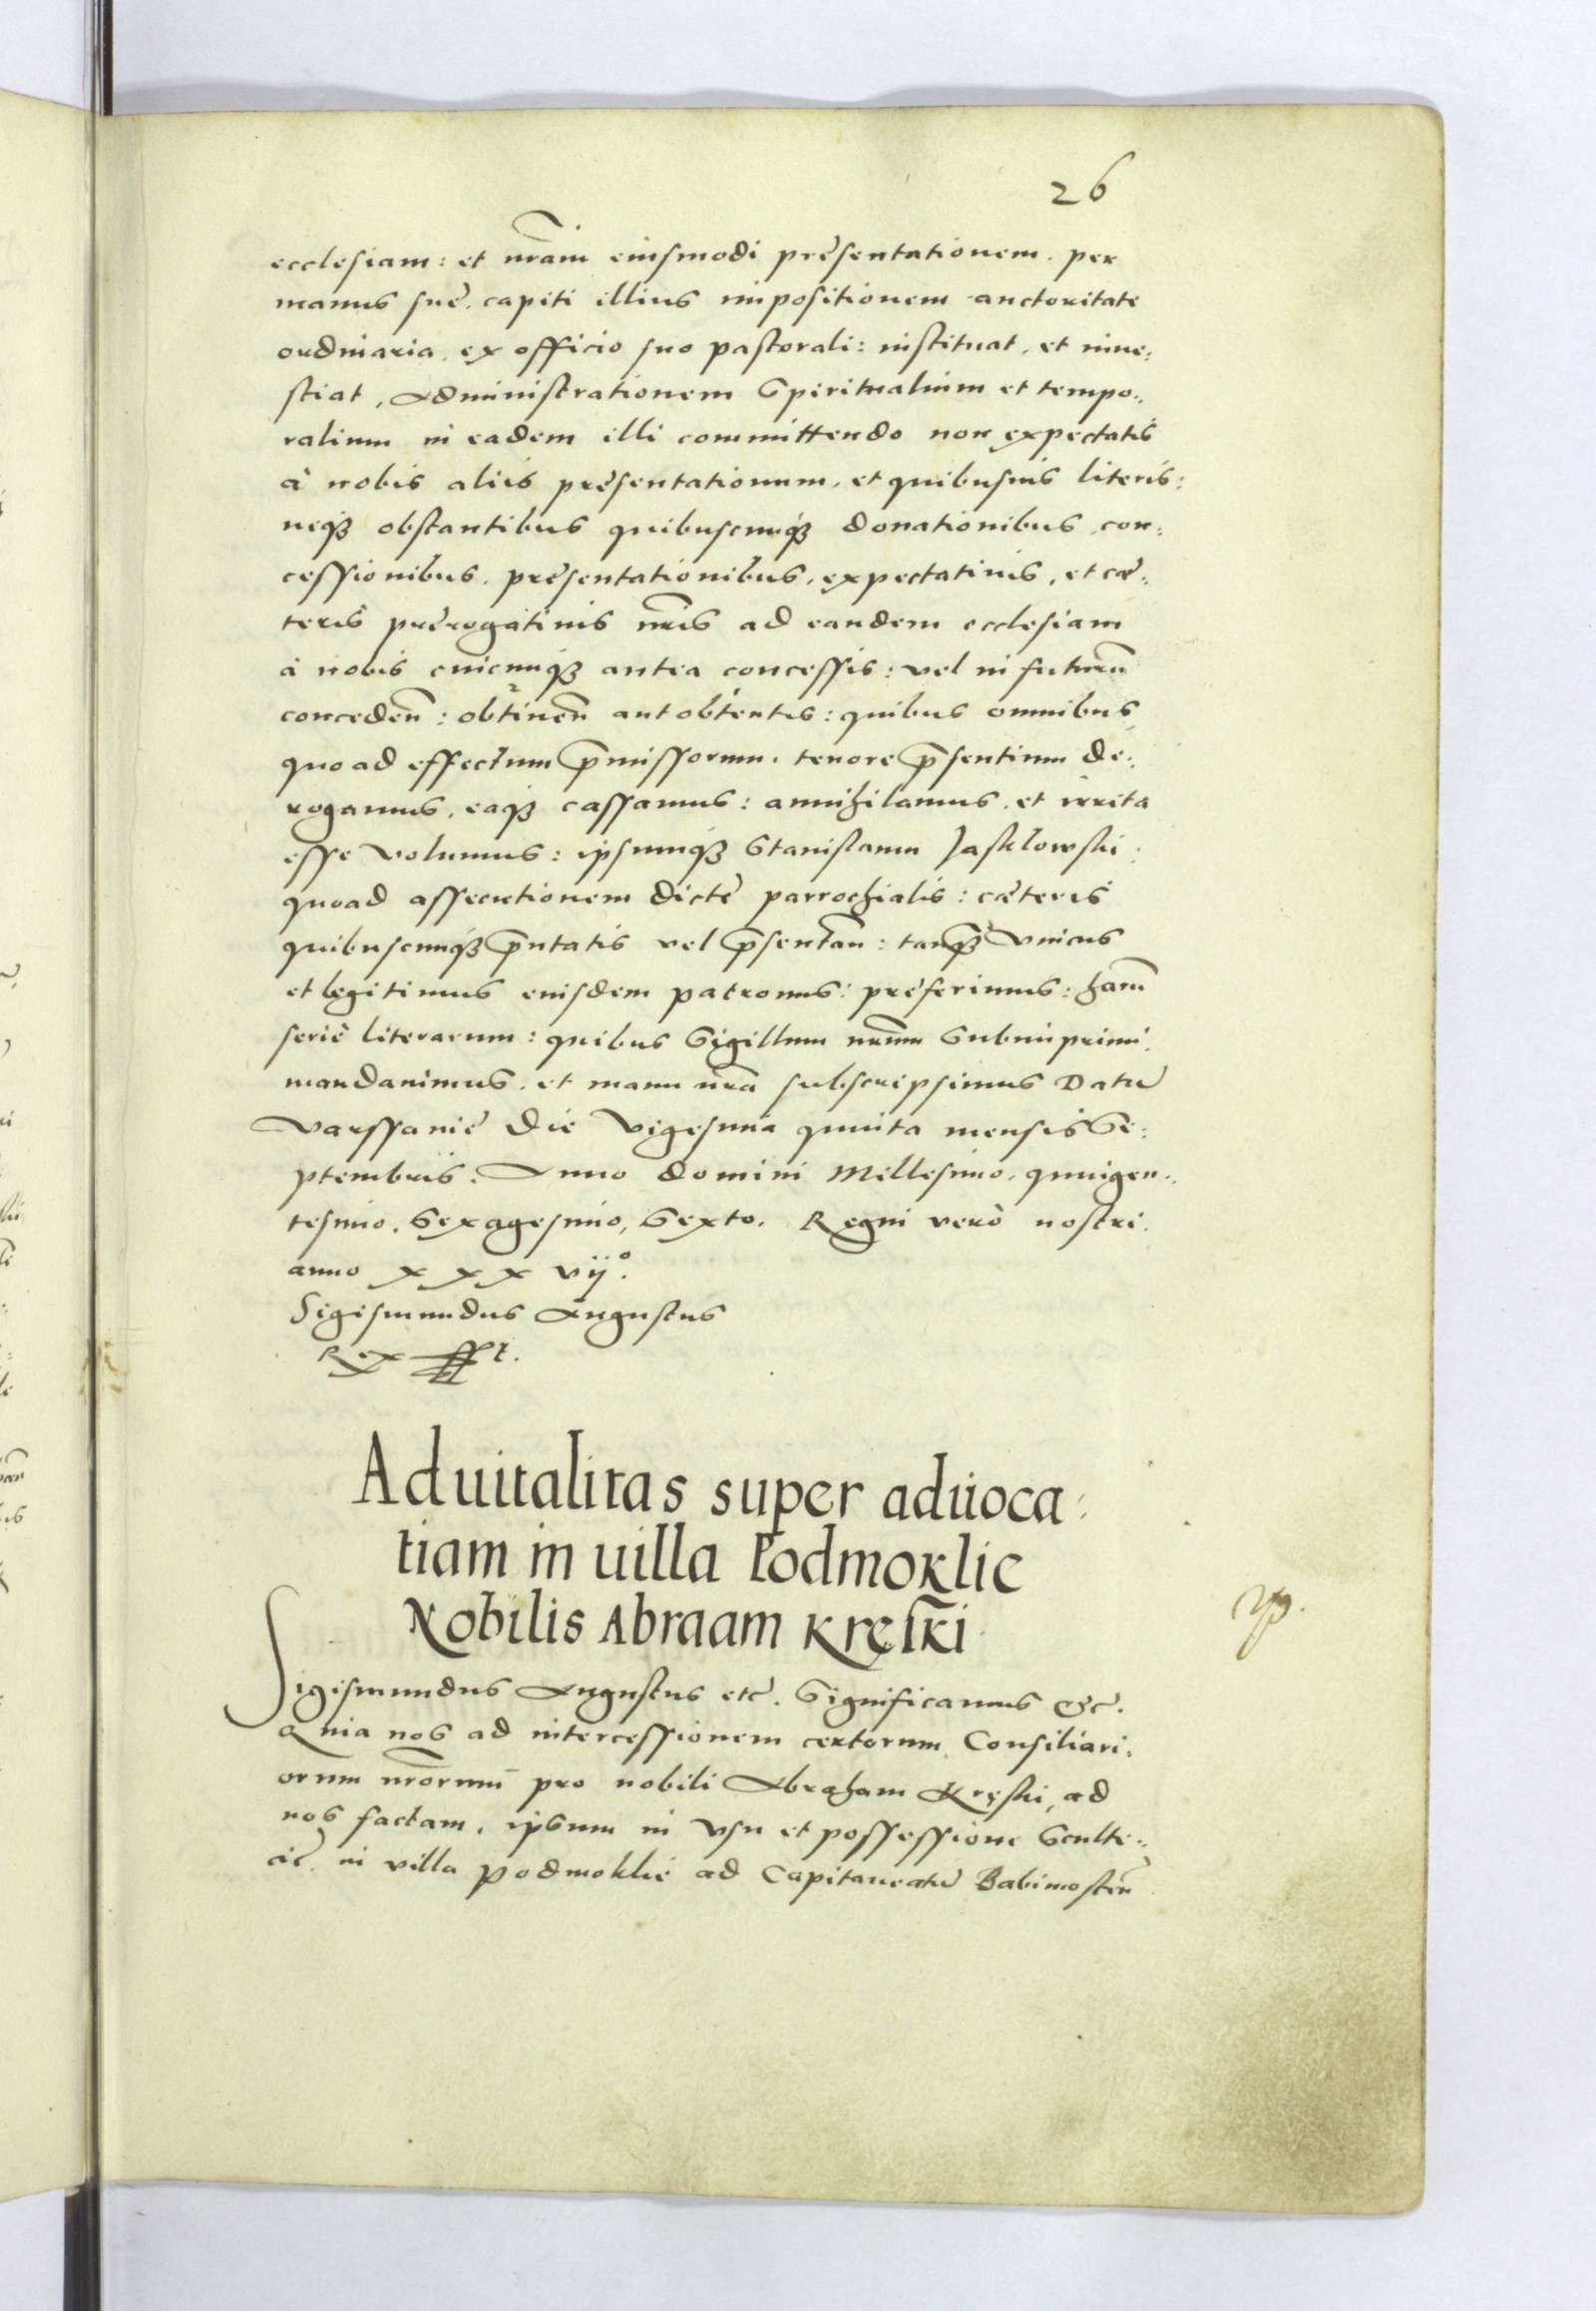 26
ecclesiam: et nr̃am eiusmodi presentationem. per
manus suę. capiti illius impositionem auctoritate
ordinaria, ex officio suo pastorali: instituat, et inue:
stiat, Administrationem Spiritualium et tempo:
ralium in eadem illi committendo non expectatis
à nobis aliis presentationum, et quibusuis literis:
neq3 obstantibus quibuscunq3 donationibus, con:
cessionibus, presentationibus, expectatiuis, et cæ:
teris prerogatiuis nr̃is ad eandem ecclesiam
à nobis cuicunq3 antea concessis: vel in futurũ
concedeñ: obtineñ aut obtentis: quibus omnibus,
quo ad effectum p̃missorum. tenore p̃sentium de:
rogamus, eaq3 cassamus: annihilamus, et irrita
esse volumus: ipsumq3 Stanislaum Jasklowski:
quoad assecutionem dictę parrochialis: cæteris
quibuscunq3 p̃ntatis vel p̃sentañ: tanq3 vnicus
et legitimus eiusdem patronus: preferimus: harũ
seriè literarum: quibus Sigillum nr̃um Subimprimi.
mandauimus. et manu nr̃a subscripsimus Datũ
Varssauię die Vigesima quinta mensis Se:
ptembris. Anno domini Millesimo. quingen:
tesimo, Sexagesimo, Sexto. Regni verò nostri.
anno x x x vij°.
Sigismundus Augustus
Rex sst.
Aduitalitas super aduoca:
tiam in uilla Podmoklie
Nobilis Abraam Kręski
Sigismundus Augustus etc̃. Significamus &c̃.
Quia nos ad intercessionem certorum Consiliari:
orum nr̃orum pro nobili Abraham Kręski, ad
nos factam, ipsum in vsu et possessione Sculte:
cię in villa Podmoklie ad Capitaneatũ Babimosteñ